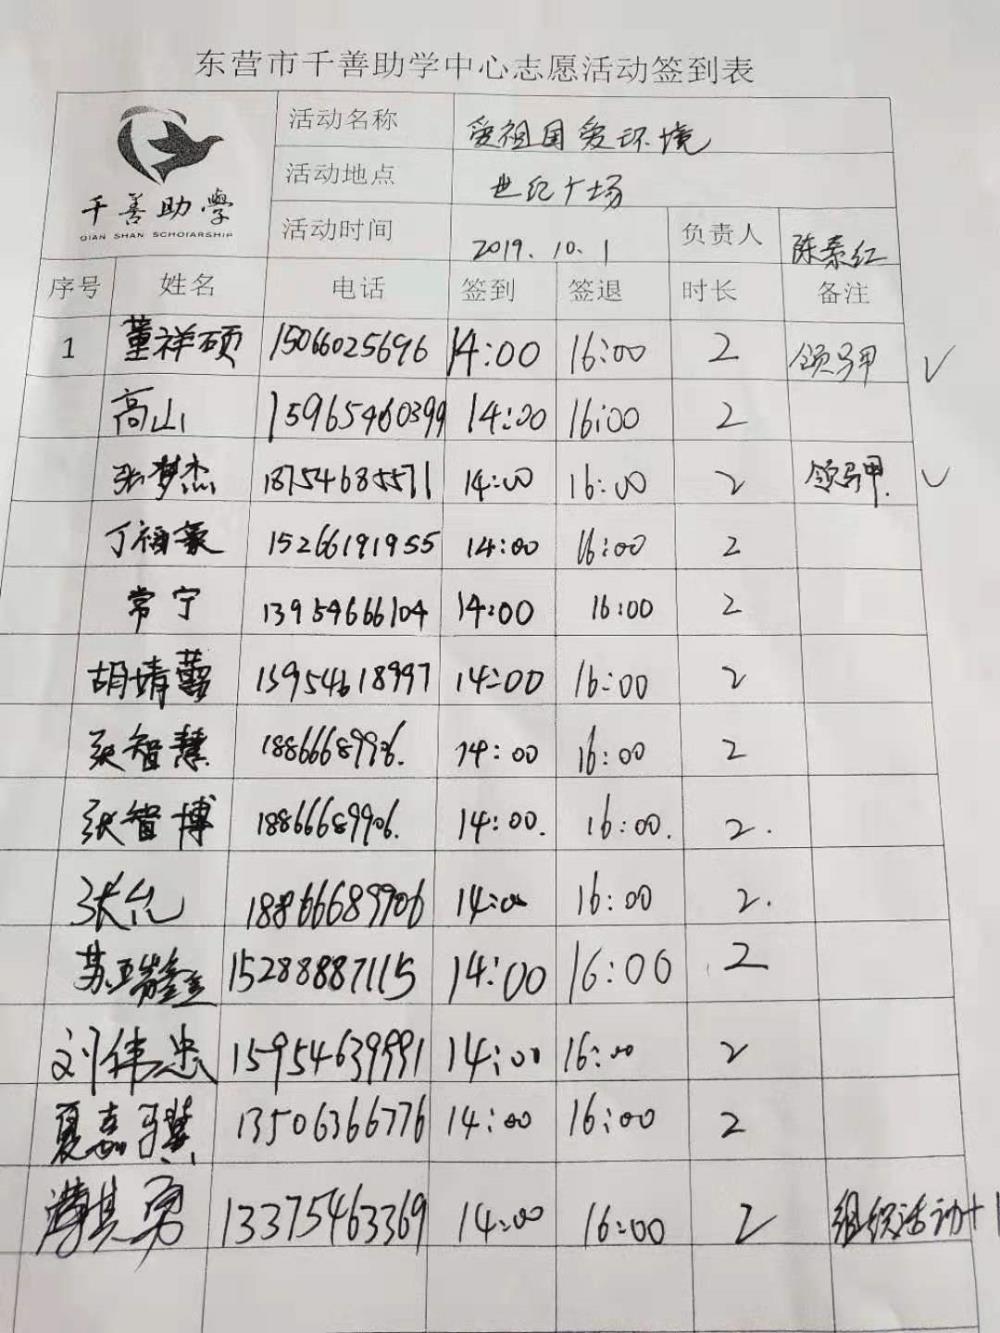 东营市千善助学中心志愿活动签到表
千善助学
QIAN SHAN SCHOLARSHIP
活动名称 爱祖国爱环境
活动地点 世纪广场
活动时间 2019.10.1 负责人 陈素红
序号 姓名 电话 签到 签退 时长 备注
1 董祥硕 15066025696 14:00 16:00 2 领马甲 ✓
高山 15965460399 14:00 16:00 2
张梦杰 18754685571 14:00 16:00 2 领马甲. ✓
丁福豪 15266191955 14:00 16:00 2
常宁 13954666104 14:00 16:00 2
胡靖 13954618997 14:00 16:00 2
张智慧 18866689906. 14:00 16:00 2
张智博 18866689906. 14:00. 16:00. 2.
张允 18866689906 14:00 16:00 2.
苏瑞鑫 15288887115 14:00 16:00 2
刘伟忠 15954639991 14:00 16:00 2
夏嘉骐 13506366776 14:00 16:00 2
其勇 13375463369 14:00 16:00 2 组织活动+1